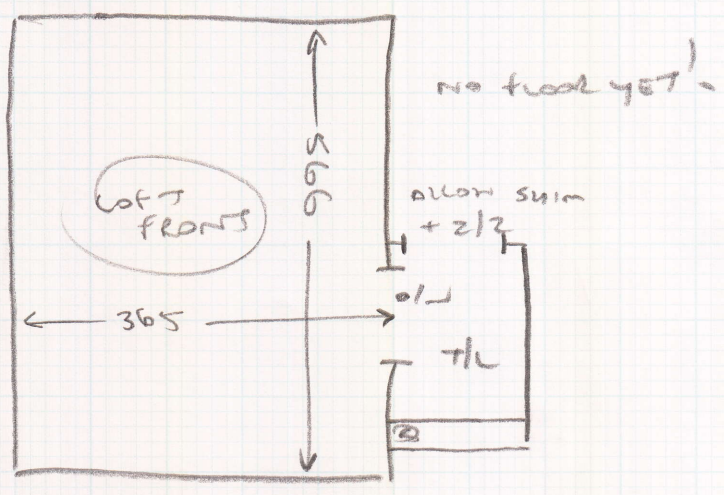 NO FLOOR YET!
566
LOFT
FRONT
ALLOW SKIM
+ 2/2
365
T/L